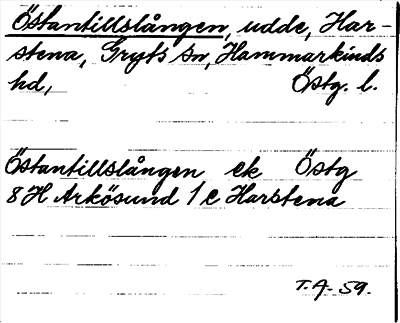 Östantillslången, udde, Har-
stena, Gryts sn, Hammarkinds
hd, Östg. l.
Östantillslången ek Östg
8 H Arkösund 1 c Harstena
T.A. 59.